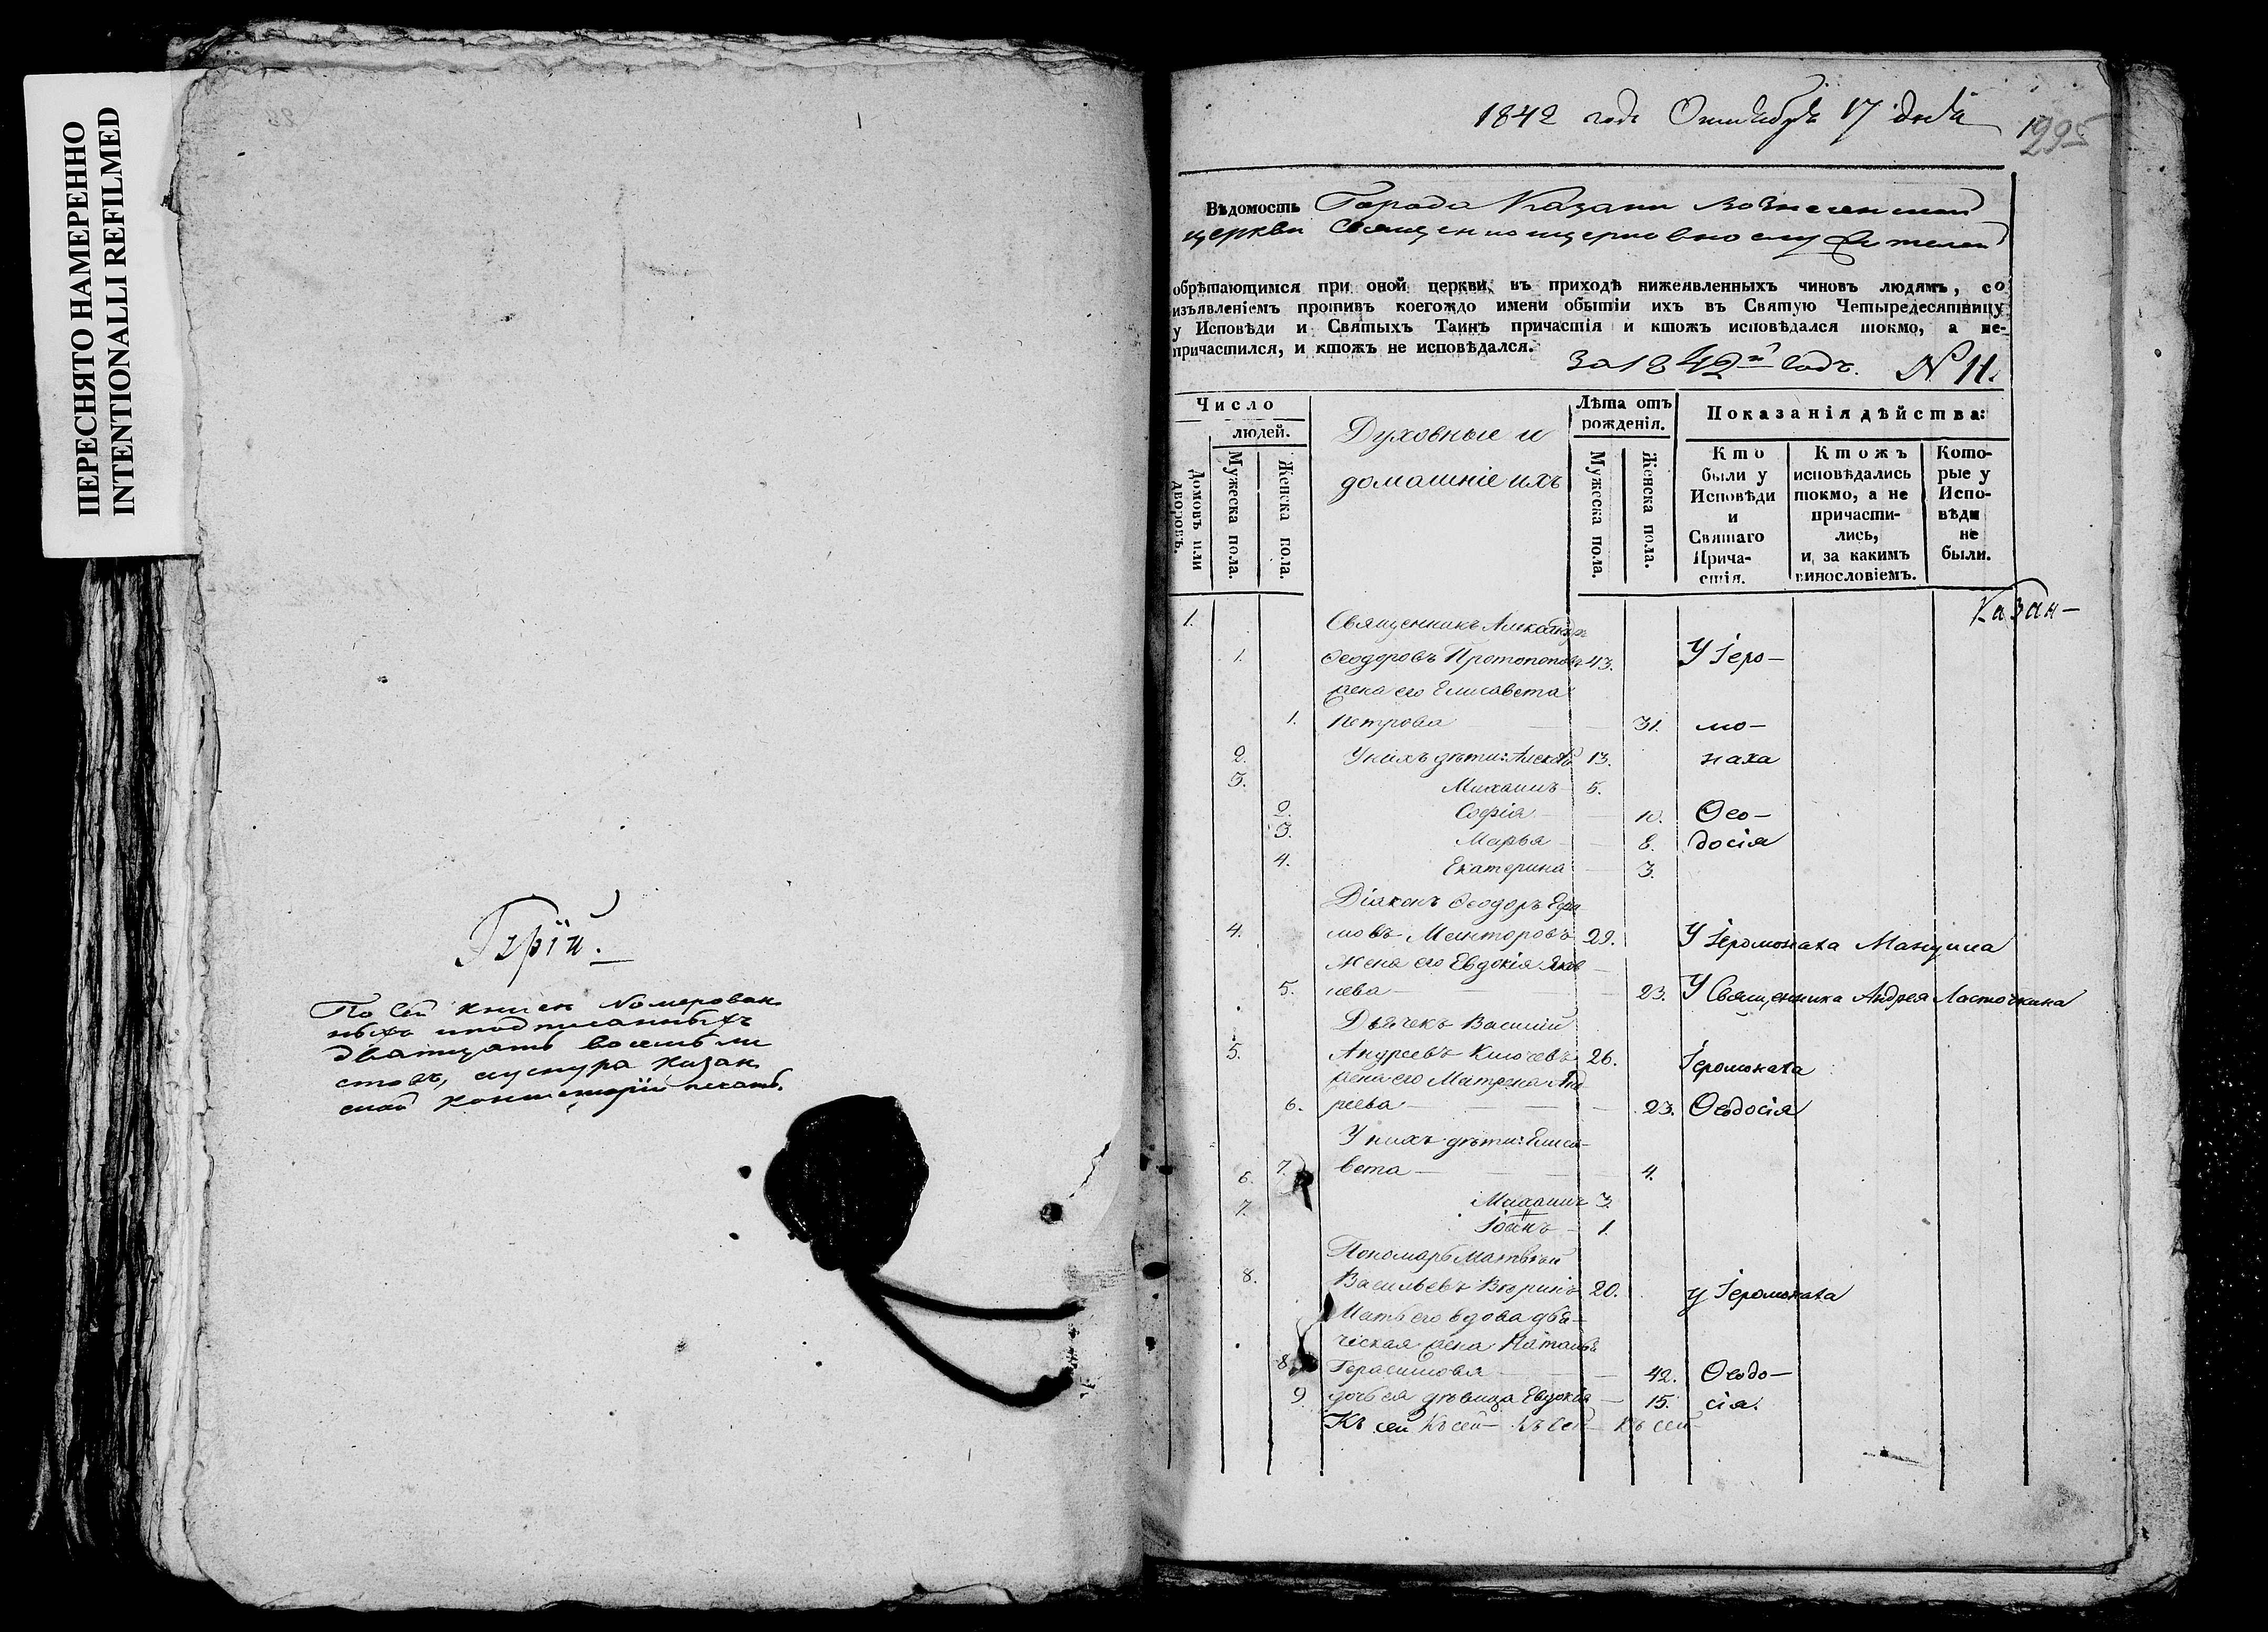 ПЕРЕСНЯТО НАМЕРЕННО
INTENTIONALLI REFILMED
По сей книге номерован
ныхъ и подписанныхъ
дватцать восемь ли
стовъ, шнура Казан
ской Консисторіи печать.
1842 года Октября 17 дня
Вѣдомость Города Казани Вознесенской
церкви Священноцерковнослужителей
обрѣтающимся при оной церкви, въ приходѣ нижеявленныхъ чиновъ людямъ, со
изъявленіемъ противъ коегождо имени обытіи ихъ въ Святую Четыредесятницу
у Исповѣди и Святыхъ Таинъ причастія и ктожъ исповѣдался токмо, а не-
причастился, и ктожъ не исповѣдался.
За 1842й годъ. N 11.
Число
людей.
Домовъ или дворовъ.
Мужеска пола.
Женска пола.
Духовные и
домашніе ихъ
Лѣта отъ
рожденія.
Мужеска пола.
Женска пола.
Показанія дѣйства:
Кто
были у
Исповѣди
и
Святаго
Прича-
стія.
Ктожъ
исповѣдались
токмо, а не
причасти-
лись,
и, за какимъ
винословіемъ.
Кото-
рые у
Испо-
вѣди
не
были.
Казан-
1. Священникъ Александръ
1. Ѳеодоровъ Протопоповъ 43. У Іеро-
жена его Елисавета
1. Петрова 31. мо-
2. У нихъ дѣти: Алексѣй 13. наха
3. Михаилъ 5.
2. Софія 10. Ѳео-
3. Марья 8. досія
4. Екатерина 3.
Діяконъ Ѳеодоръ Ефи
4. мовъ Менторовъ 29. У Іеромонаха
Жена его Евдокія Яков
5. лева 23. У Священника Андрея Ласточкина
Дьячекъ Василий
5. Андреевъ Ключевъ 26. Іеромонаха
жена его Матрена Анд
6. реева 23. Ѳеодосія
У нихъ дѣти: Елиса-
7. вета 4.
6. Михаилъ 3.
7. Іоаннъ 1.
Пономарь Матвѣй
8. Васильевъ 20. у Іеромонаха
Мать его вдова дья-
ческая жена Наталья
8. Герасимова 42. Ѳеодо-
9. дочь ея дѣвица Евдокія 15. сія.
Къ сей Къ сей Къ сей Къ сей